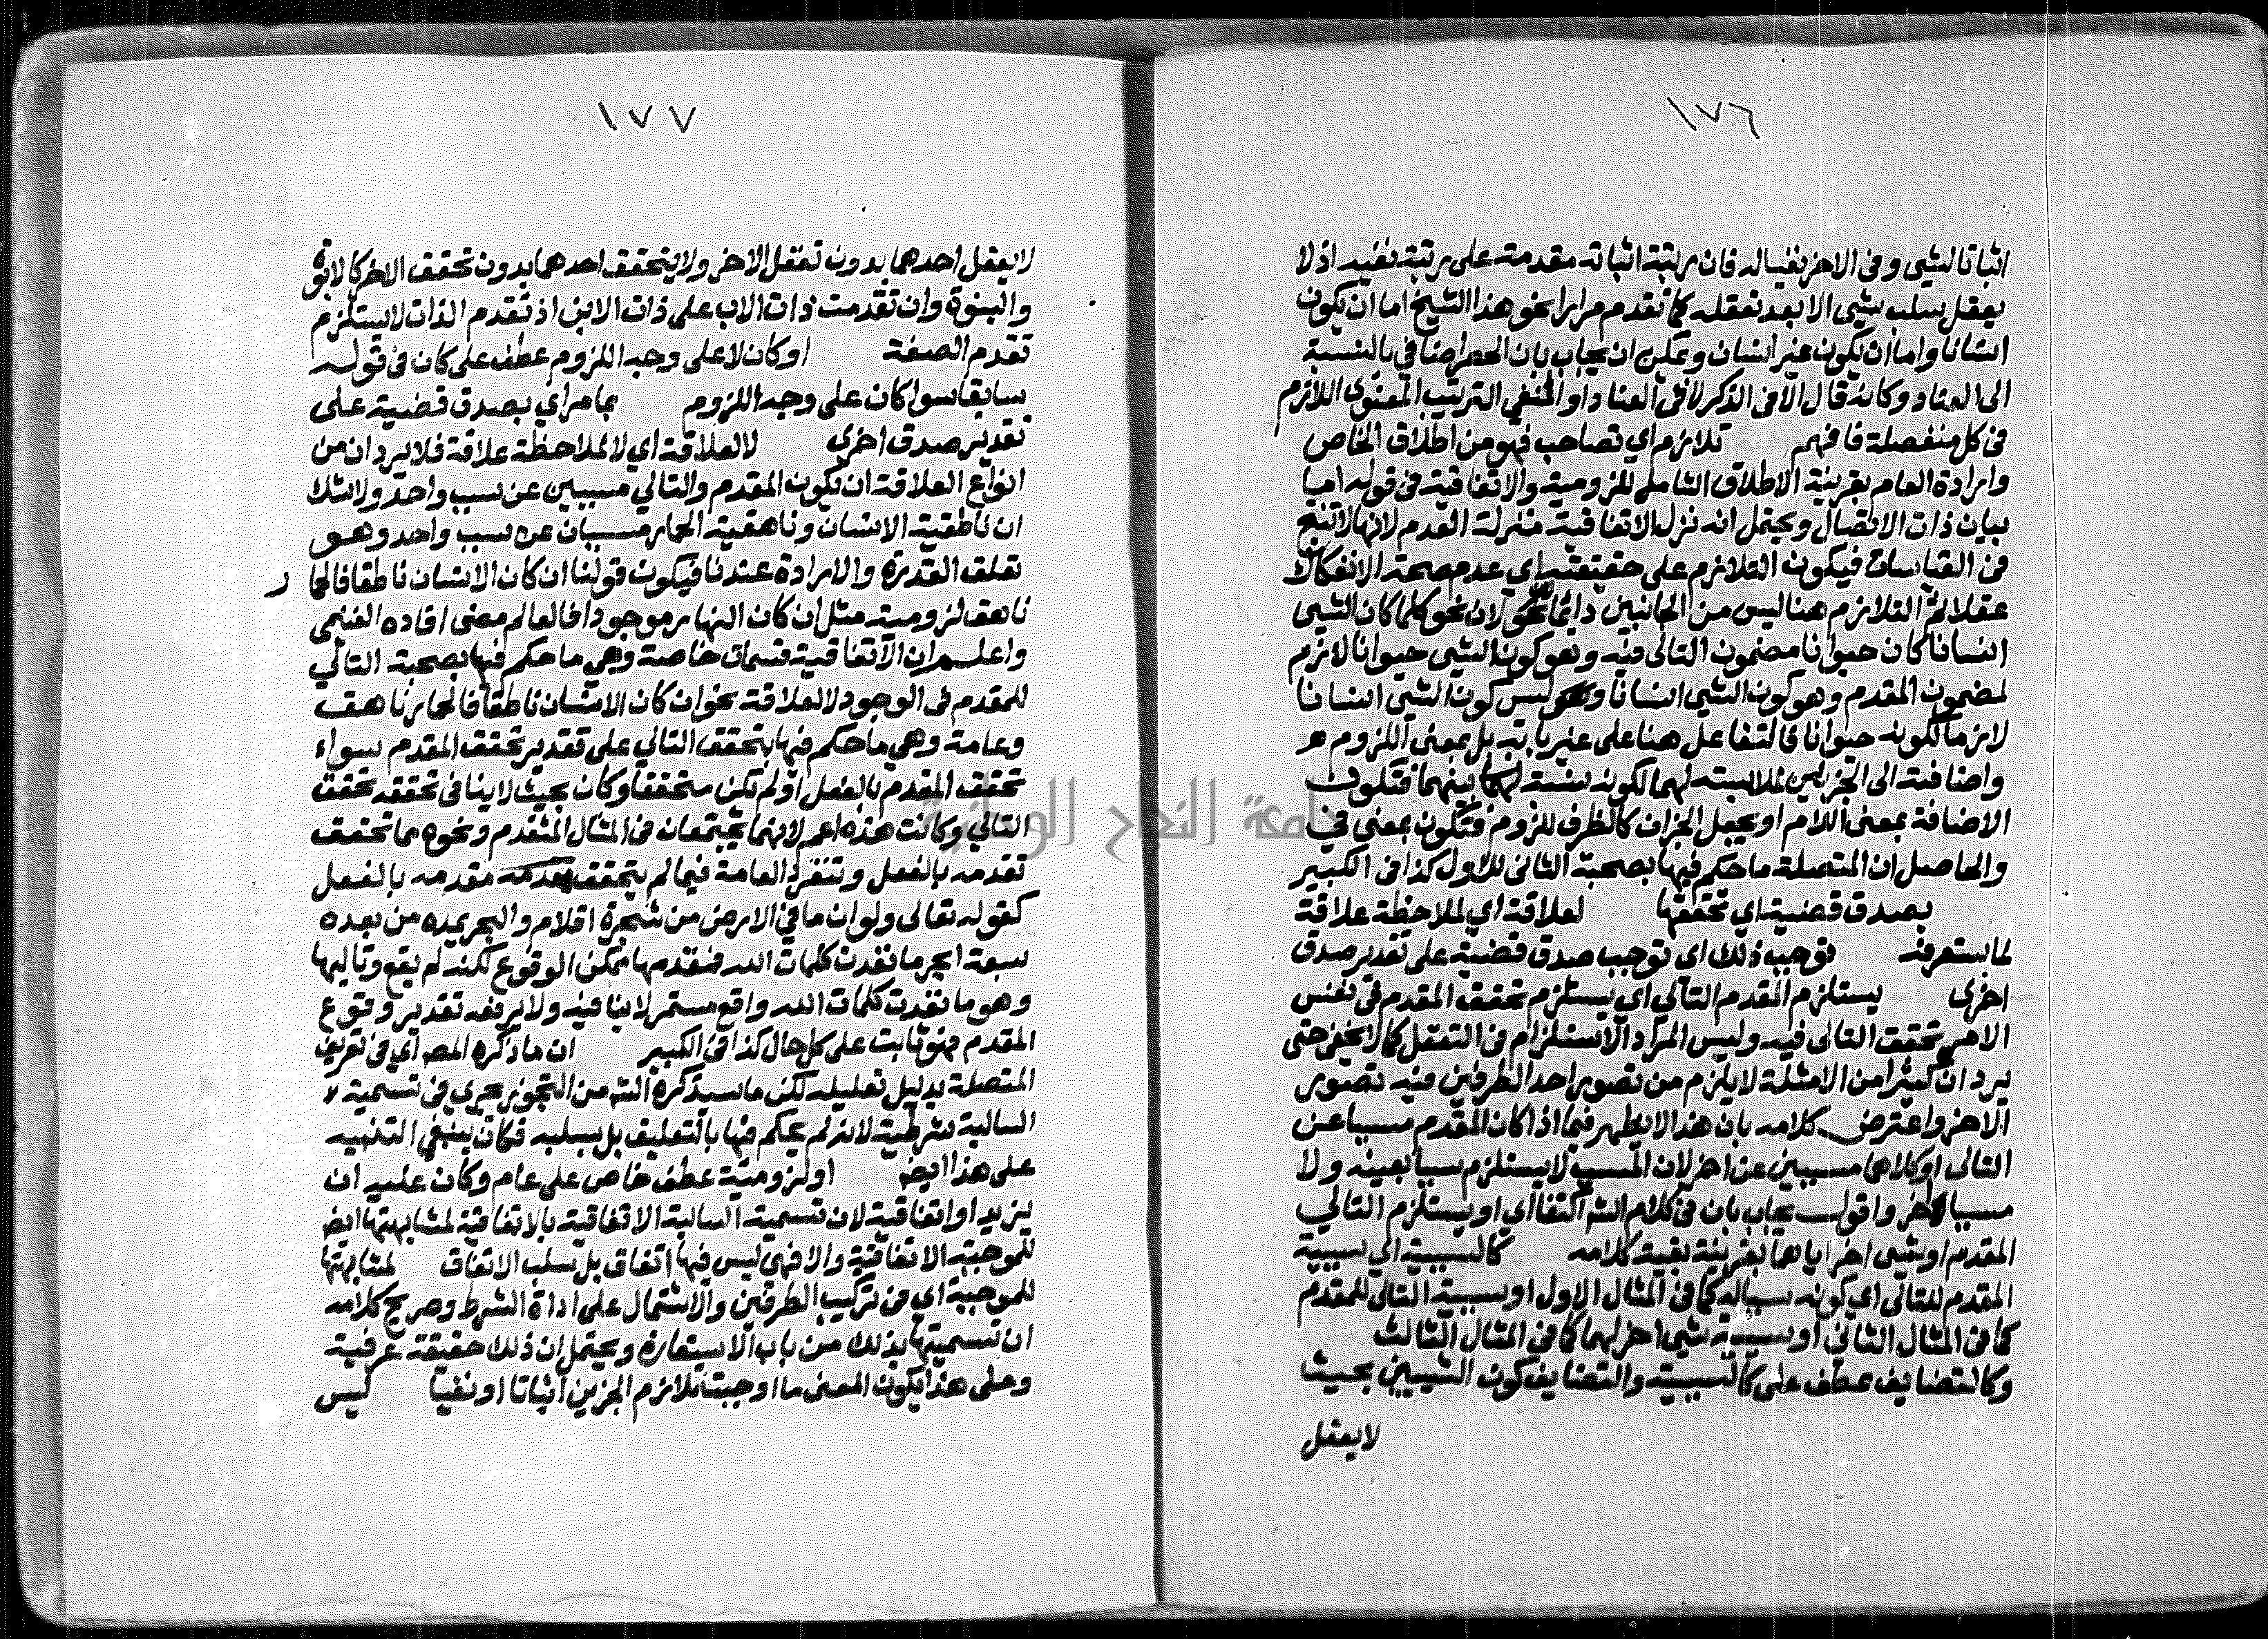 ١٧٦
اثباتا لشيى وفى الاخر نفيا له فان مرتبة اثباته مقدمة على مرتبة نفيه اذ لا
يعقل سلب شيى الا بعد تعقله كما تقدم مرارا نحو هذا الشيخ اما ان يكون
انسانا واما ان يكون غير انسان ويمكن ان يجاب بان الحصر اضافي بالنسبة
الى العناد وكانه قال الا فى الذكر لا فى العناد او المنفي الترتيب المعنوى اللازم
فى كل منفصلة فافهم تلازم اي تصاحب فهو من اطلاق الخاص
وارادة العام بقرينة الاطلاق الشامل للزومية والاتفاقية فى قوله اما
بيان ذات الاتصال ويحتمل انه نزل الاتفاقية منزلة العدم لانها لا تنتج
فى القياسات فيكون التلازم على حقيقته اي عدم صحة الانفكاك
عقلا ثم التلازم هنا ليس من الجانبين دائما لان نحو كلما كان الشيى
انسانا كان حيوانا مضمون التالى فيه وهو كون الشيى حيوانا لازم
لمضمون المقدم وهو كون الشيى انسانا وليس كون الشيى انسانا
لازما لكونه حيوانا فالتفاعل هنا على غير بابه بل بمعنى اللزوم
واضافته الى الجزئين لملابسته لهما لكونه نسبة بينهما فتكون
الاضافة بمعنى اللام او يجعل الجزان كالظرف للزوم فتكون بمعنى في
والحاصل ان المتصلة ما حكم فيها بصحبة الثانى للاول كذا فى الكبير
بصدق قضية اي تحققها لعلاقة اي لملاحظة علاقة
لما ستعرفه توجب ذلك اى توجب صدق قضية على تقدير صدق
اخرى يستلزم المقدم التالي اي يستلزم تحقق المقدم فى نفس
الامر تحقق التالى فيه وليس المراد الاستلزام فى التعقل كما لا يخفى حتى
يرد ان كثيرا من الامثلة لا يلزم من تصور احد الطرفين فيه تصور
الاخر واعترض كلامه بان هذا لا يظهر فيما اذا كان المقدم مسببا عن
التالى او كلاهما مسببين عن اخر لان المسبب لا يستلزم سببا بعينه ولا
مسببا اخر واقول يجاب بان فى كلام الشم اكتفا اي او يستلزم التالي
المقدم او شيى اخر اياهما بقرينة بقية كلامه كالسببية اي سببية
المقدم للتالى اي كونه سببا له كما فى المثال الاول او سببية التالى للمقدم
كما فى المثال الثانى او سببية شيى اخر لهما كما فى المثال الثالث
وكالتضايف عطف على كالسببية والتضايف كون الشيئين بحيث
لا يعقل
١٧٧
لا يعقل احدهما بدون تعقل الاخر ولا يتحقق احدهما بدون تحقق الاخر كالابوة
والبنوة وان تقدمت ذات الاب على ذات الابن اذ تقدم الذات لا يستلزم
تقدم الصفة او كان لا على وجه اللزوم عطف على كان فى قوله
سابقا سوا كان على وجه اللزوم بما مر اي بصدق قضية على
تقدير صدق اخرى لا لعلاقة اي لا لملاحظة علاقة فلا يرد ان من
انواع العلاقة ان يكون المقدم والتالي مسببين عن سبب واحد ولا شك
ان ناطقية الانسان وناهقية الحمار مسببان عن سبب واحد وهو
تعلق القدرة والارادة عندنا فيكون قولنا ان كان الانسان ناطقا فالحمار
ناهق لزومية مثل ان كان النهار موجودا فالعالم مضى افاده الغنمى
واعلم ان الاتفاقية قسمان خاصة وهي ما حكم فيها بصحبة التالي
للمقدم فى الوجود لا لعلاقة نحو ان كان الانسان ناطقا فالحمار ناهق
وعامة وهي ما حكم فيها بتحقق التالي على تقدير تحقق المقدم سواء
تحقق المقدم بالفعل او لم يكن متحققا وكان بحيث لا ينافى تحققه تحقق
التالي وكانت هذه اعم لانهما يجتمعان فى المثال المتقدم ونحوه مما تحقق
تقدمه بالفعل وتنفرد العامة فيما لم يتحقق مقدمه بالفعل
كقوله تعالى ولو ان ما في الارض من شجرة اقلام والبحر يمده من بعده
سبعة ابحر ما نفدت كلمات الله فمقدمها ممكن الوقوع لكنه لم يقع وتاليها
وهو ما نفدت كلمات الله واقع مستمر لا ينافيه ولا يرفعه تقدير وقوع
المقدم فهو ثابت على كل حال كذا فى الكبير ان ما ذكره المصـ اي فى تعريف
المتصلة بدليل تعليله لكن ما سيذكره الشم من التجوز يجري فى تسمية
السالبة شرطية لانه لم يحكم فيها بالتعليق بل بسلبه فكان ينبغي التنبيه
على هذا ايضـ او لزومية عطف خاص على عام وكان عليه ان
يزيد او اتفاقية لان تسمية السالبة الاتفاقية بالاتفاقية لمشابهتها ايضـ
للموجبة الاتفاقية والا فهي ليس فيها اتفاق بل سلب الاتفاق لمشابهتها
للموجبة اي فى تركيب الطرفين والاشتمال على اداة الشرط وصريح كلامه
ان تسميتها بذلك من باب الاستعارة ويحتمل ان ذلك حقيقة عرفية
وعلى هذا يكون المعنى ما اوجبت تلازم الجزين اثباتا او نفيا ليس